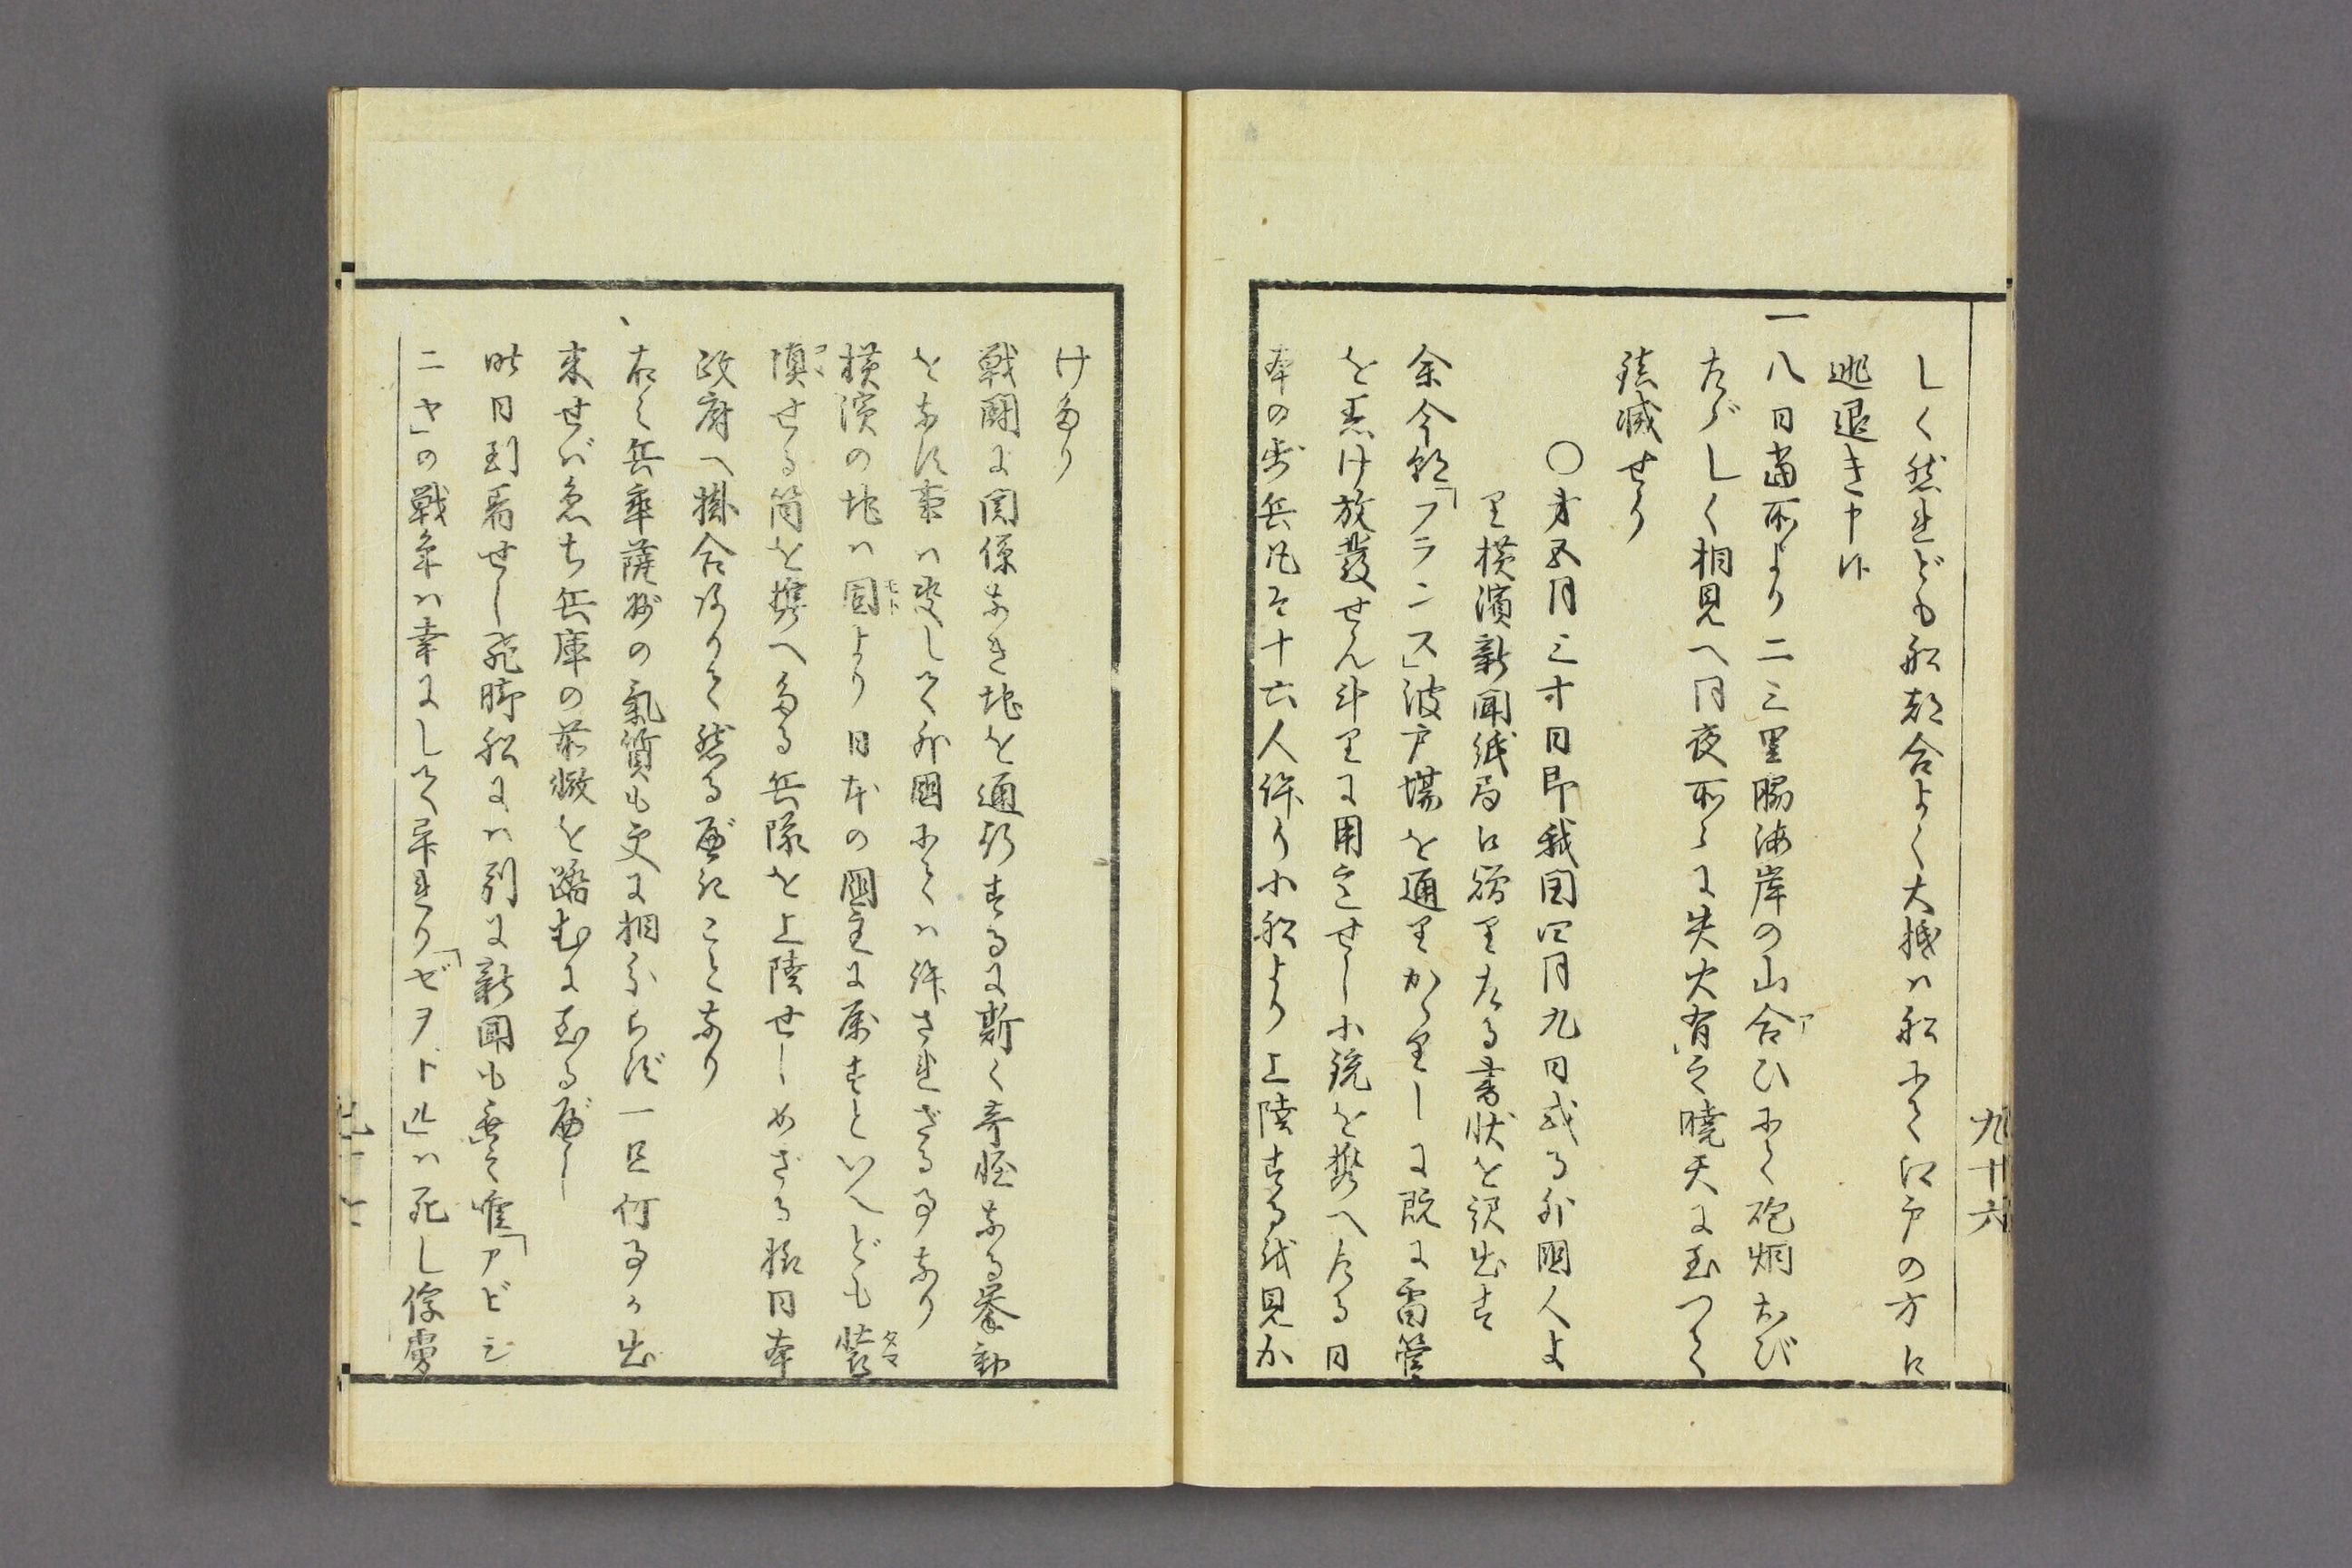 九十六
しく然れども船都合よく大抵ハ船にて江戸の方に
逃退き申候
一八日當所より二三里脇海岸の山合ひにて砲烟おび
たゞしく相見へ同夜所々に失火有之暁天に至つて
鎮滅せり
〇第五月三十日即我国四月九日或る外國人よ
り横濱新聞紙局に贈りたる書状を訳出す
余今朝「フランス」波戸場を通りかゝりしに既に雷管
を悪け放發せん斗りに用意せし小銃を携へたる日
本の歩兵凡そ十六人許り小船より上陸するを見か
けたり
戦闘に関係なき地を通行するに斯く奇怪なる挙動
をなす事ハ決して外國にてハ許されざる事なり
横濱の地ハ固より日本の國主に属すといへども装
填せる筒を携へたる兵隊を上陸せしめざる様日本
政府へ掛合ありて然るべきことなり
右之兵卒薩州の氣質も更に相分らず一旦何事か出
来せバ忽ち兵庫の前轍を踏むに至るべし
昨日到着せし飛脚船にハ別に新聞も無之唯「アビシ
ニヤ」の戦争ハ幸にして平れり「ゼヲドル」ハ死し俘虜